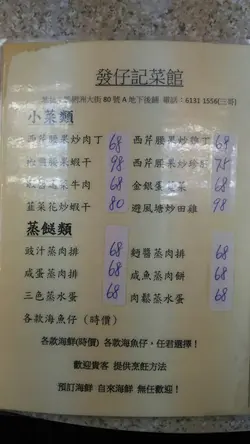 發仔記菜館
大街 80 號 A 地下後鋪 電話：6131 1556(三哥)
小菜類
西芹腰果炒肉丁 68 西芹腰果炒雞丁 68
腰果蝦干 98 西芹腰果炒珍肝 78
牛肉 68 金銀蛋莧菜 68
韮菜花炒蝦干 80 避風塘炒田雞 98
蒸餸類
豉汁蒸肉排 68 麵醬蒸肉排 68
咸蛋蒸肉排 68 咸魚蒸肉餅 68
三色蒸水蛋 68 肉鬆蒸水蛋 68
各款海魚仔（時價）
各款海鮮(時價) 各款海魚仔，任君選擇！
歡迎貴客 提供烹飪方法
預訂海鮮 自來海鮮 無任歡迎！